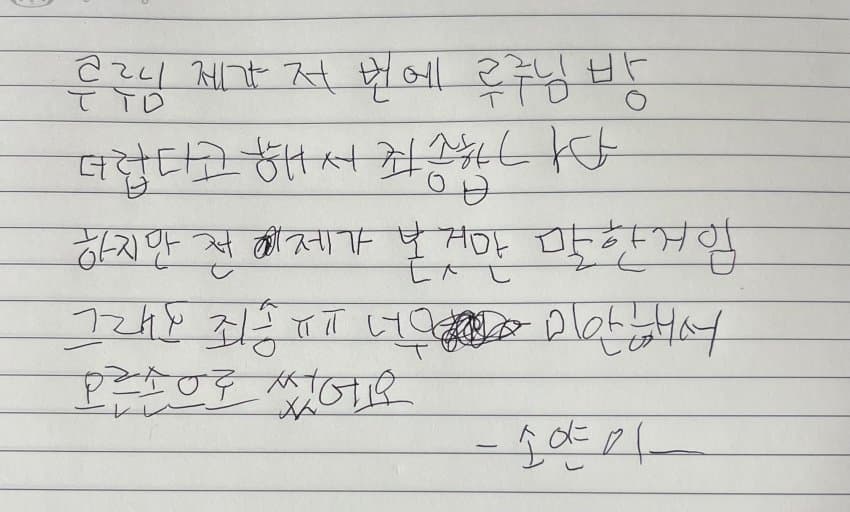 루루님 제가 저 번에 루루님 방
더럽다고 해서 죄송합니다
하지만 전 제가 본것만 말한거임
그래도 죄송ㅠㅠ 너무 미안해서
오른손으로 썼어요
- 소얀이 -